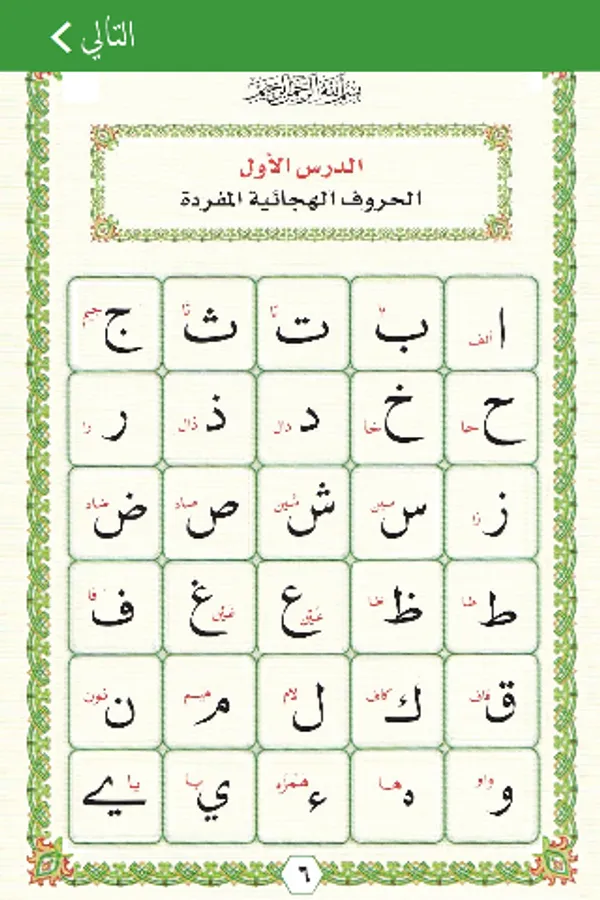 التالي >
بسم الله الرحمن الرحيم
الدرس الأول
الحروف الهجائية المفردة
ا ألف ب با ت تا ث ثا ج جيم
ح حا خ خا د دال ذ ذال ر را
ز زا س سين ش شين ص صاد ض ضاد
ط طا ظ ظا ع عين غ غين ف فا
ق قاف ك كاف ل لام م ميم ن نون
و واو ه ها ء همزه ي يا ے يا
٦